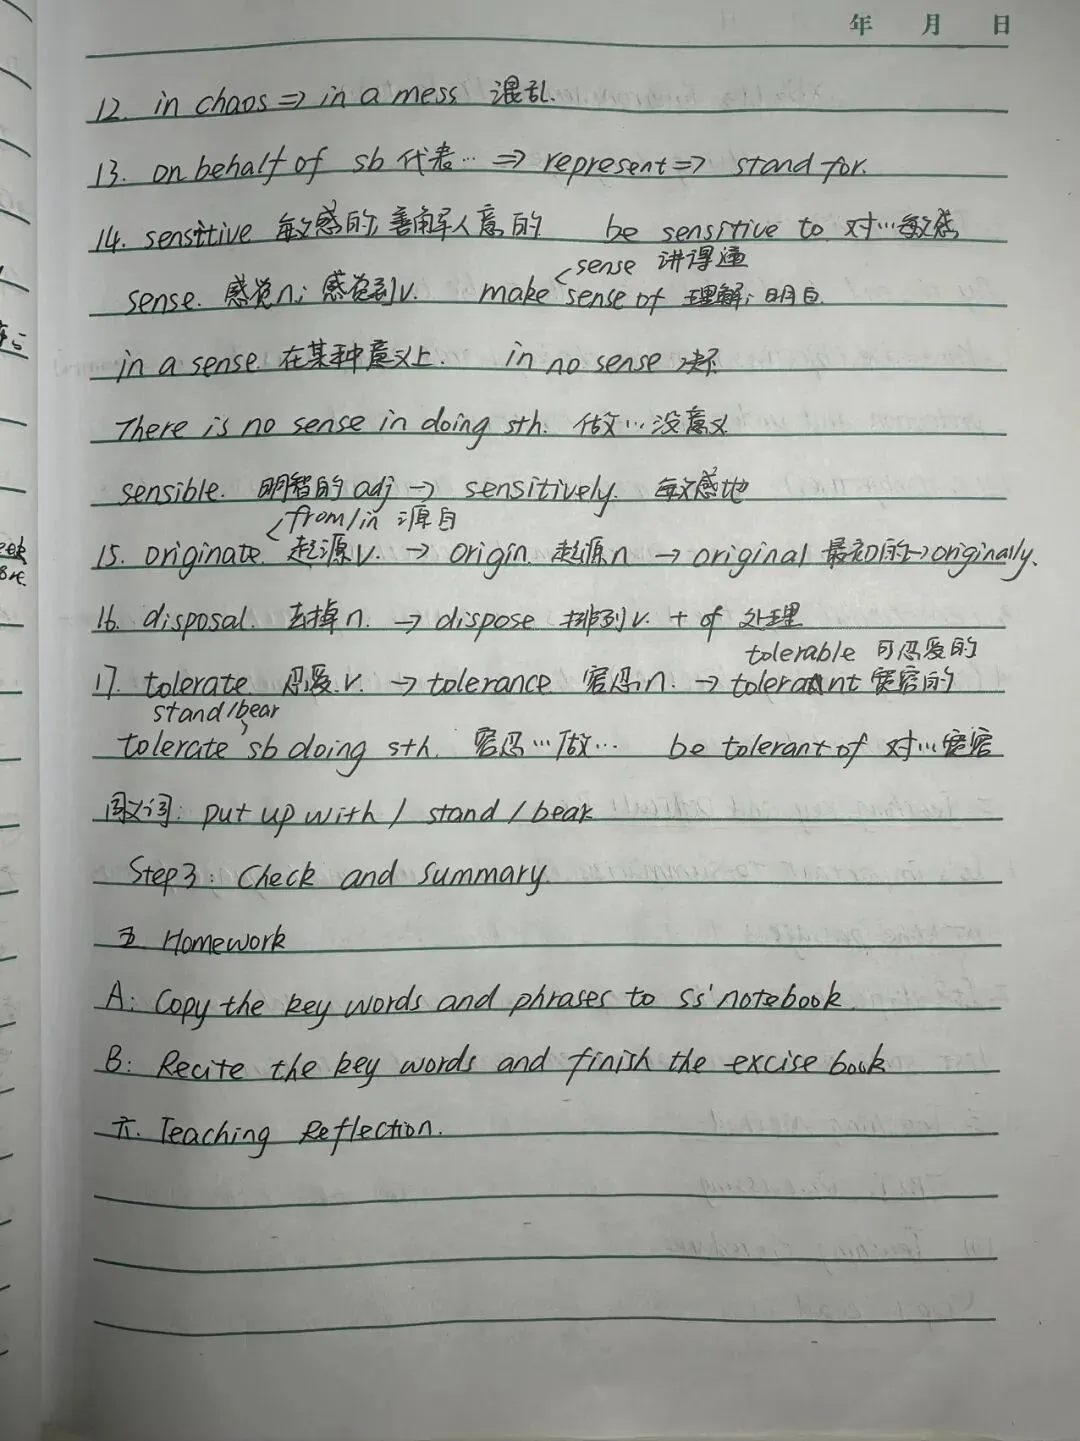 年 月 日
12. in chaos => in a mess 混乱.
13. on behalf of sb 代表… => represent => stand for.
14. sensitive 敏感的, 善解人意的 be sensitive to 对…敏感
sense 讲得通
sense. 感觉n; 感觉到v. make sense of 理解; 明白.
in a sense. 在某种意义上. in no sense 决不
There is no sense in doing sth. 做…没意义
sensible. 明智的 adj → sensitively. 敏感地
from/in 源自
15. originate. 起源v. → origin. 起源n → original 最初的 → originally.
16. disposal. 去掉n. → dispose 排列v. + of 处理
tolerable 可忍受的
17. tolerate. 忍受.v. → tolerance 容忍n. → tolerant 宽容的
stand/bear
tolerate sb doing sth. 容忍…做… be tolerant of 对…宽容
同义词: put up with / stand / bear
Step3: Check and summary.
五. Homework
A: Copy the key words and phrases to ss' notebook.
B: Recite the key words and finish the excise book
六. Teaching Reflection.